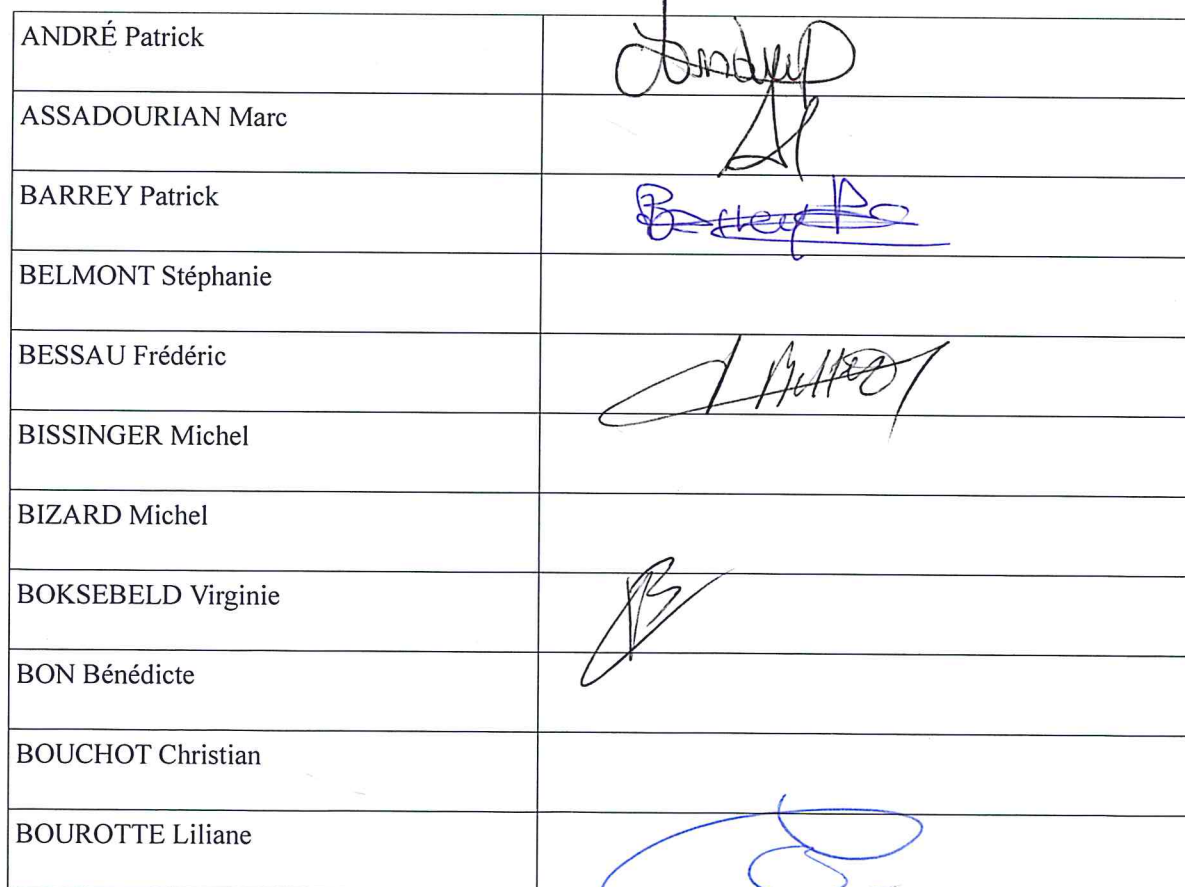 ANDRÉ Patrick
ASSADOURIAN Marc
BARREY Patrick
BELMONT Stéphanie
BESSAU Frédéric
BISSINGER Michel
BIZARD Michel
BOKSEBELD Virginie
BON Bénédicte
BOUCHOT Christian
BOUROTTE Liliane